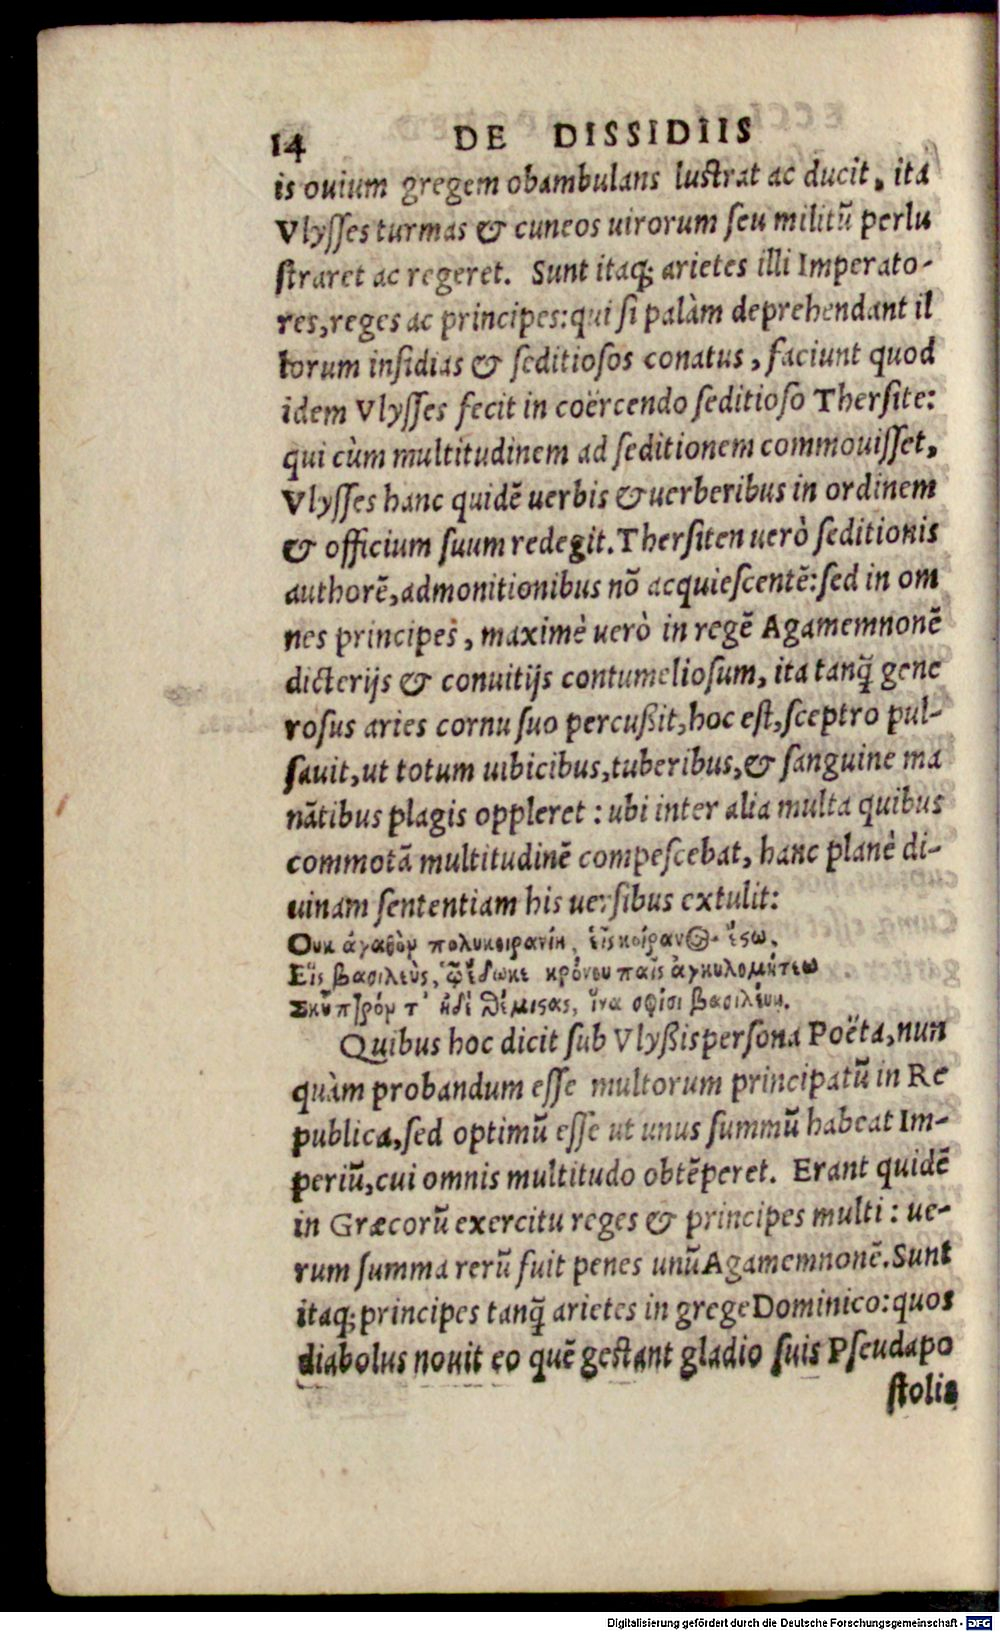 14 DE DISSIDIIS
is ouium gregem obambulans lustrat ac ducit, ita
Vlysses turmas & cuneos uirorum seu militũ perlu
straret ac regeret. Sunt itaq; arietes illi Imperato-
res, reges ac principes: qui si palàm deprehendant il
lorum insidias & seditiosos conatus, faciunt quod
idem Vlysses fecit in coërcendo seditioso Thersite:
qui cùm multitudinem ad seditionem commouisset,
Vlysses hanc quidẽ uerbis & uerberibus in ordinem
& officium suum redegit. Thersiten uerò seditionis
authorẽ, admonitionibus nõ acquiescentẽ: sed in om
nes principes, maximè uerò in regẽ Agamemnonẽ
dicterijs & conuitijs contumeliosum, ita tanq̃ gene
rosus aries cornu suo percußit, hoc est, sceptro pul-
sauit, ut totum uibicibus, tuberibus, & sanguine ma
nãtibus plagis oppleret: ubi inter alia multa quibus
commotã multitudinẽ compescebat, hanc planè di-
uinam sententiam his uersibus extulit:
Ουκ ἀγαθὸν πολυκοιρανίη, εἷς κοίρανος ἔςω.
Εἷς βασιλεὺς, ᾧ ἔδωκε κρόνου παῖς ἀγκυλομήτεω
Σκῆπτρόν τ' ἠδὲ θέμιςας, ἵνα σφίσι βασιλεύῃ.
Quibus hoc dicit sub Vlyßis persona Poëta, nun
quàm probandum esse multorum principatũ in Re
publica, sed optimũ esse ut unus summũ habeat Im-
periũ, cui omnis multitudo obtẽperet. Erant quidẽ
in Græcorũ exercitu reges & principes multi: ue-
rum summa rerũ fuit penes unũ Agamemnonẽ. Sunt
itaq; principes tanq̃ arietes in grege Dominico: quos
diabolus nouit eo quẽ gestant gladio suis Pseudapo
stolis
Digitalisierung gefördert durch die Deutsche Forschungsgemeinschaft - DFG